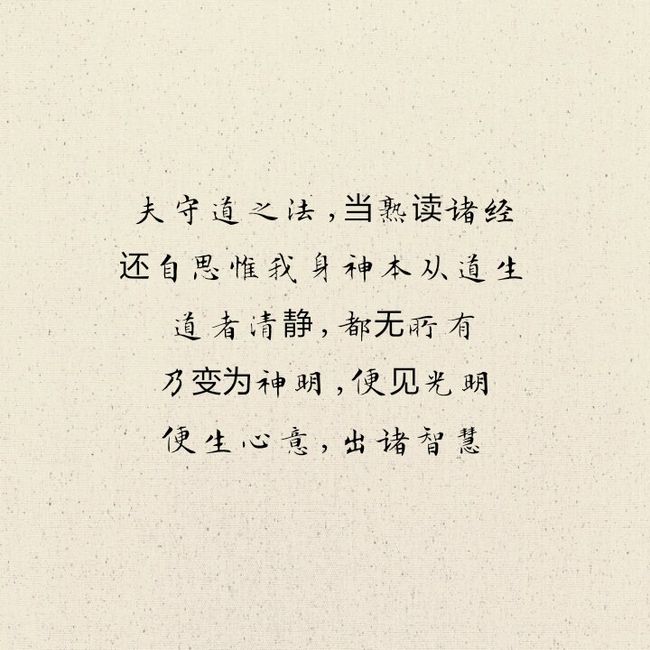 夫守道之法,当熟读诸经
还自思惟我身神本从道生
道者清静,都无所有
乃变为神明,便见光明
便生心意,出诸智慧